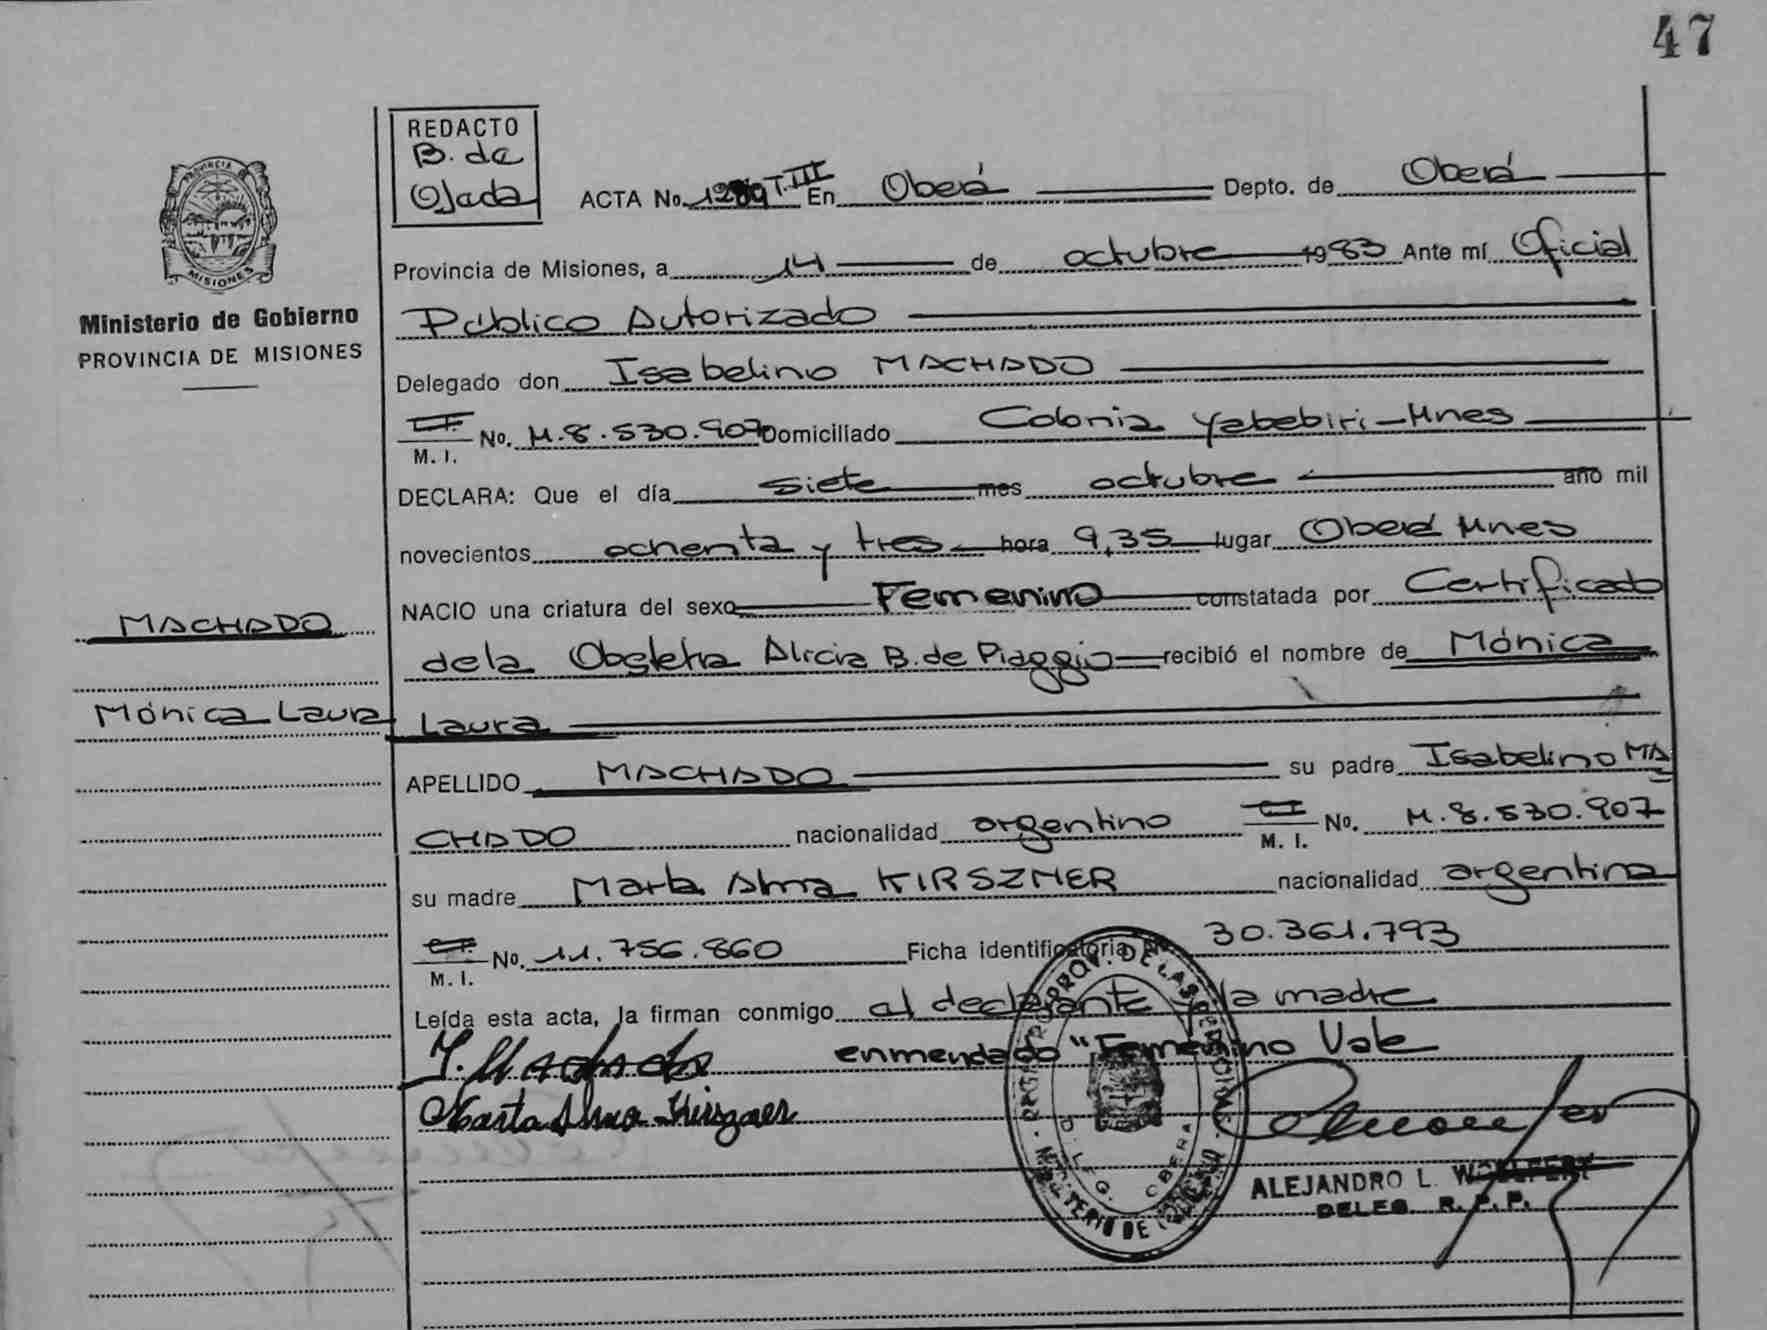 47
REDACTO
B. de
Ojada
ACTA No. T.III En Oberá Depto. de Oberá
Provincia de Misiones, a 14 de octubre 1983 Ante mí Oficial
Público Autorizado
Delegado don Isabelino MACHADO
C.I. No. M.8.530.907 Domiciliado Colonia Yabebiri-Mnes
M. I.
DECLARA: Que el día siete mes octubre año mil
novecientos ochenta y tres hora 9,35 lugar Oberá Mnes
NACIO una criatura del sexo Femenino constatada por Certificado
de la Obstetra Alicia B. de Piaggio recibió el nombre de Mónica
Laura
APELLIDO MACHADO su padre Isabelino MA
CHADO nacionalidad argentino C.I. No. M.8.530.907
M. I.
su madre Marta Alma KIRSZNER nacionalidad argentina
C.I. No. 11.756.860 Ficha identificatoria No 30.361.793
M. I.
Leída esta acta, la firman conmigo el declarante y la madre
enmendado "Femenino Vale
I. Machado
Marta Alma Kirszner
ALEJANDRO L.
DELEG. R. P. P.
REGISTRO PROV. DE LAS PERSONAS
MINISTERIO DE GOBIERNO
DELEG. OBERA
PROVINCIA
MISIONES
Ministerio de Gobierno
PROVINCIA DE MISIONES
MACHADO
Mónica Laura